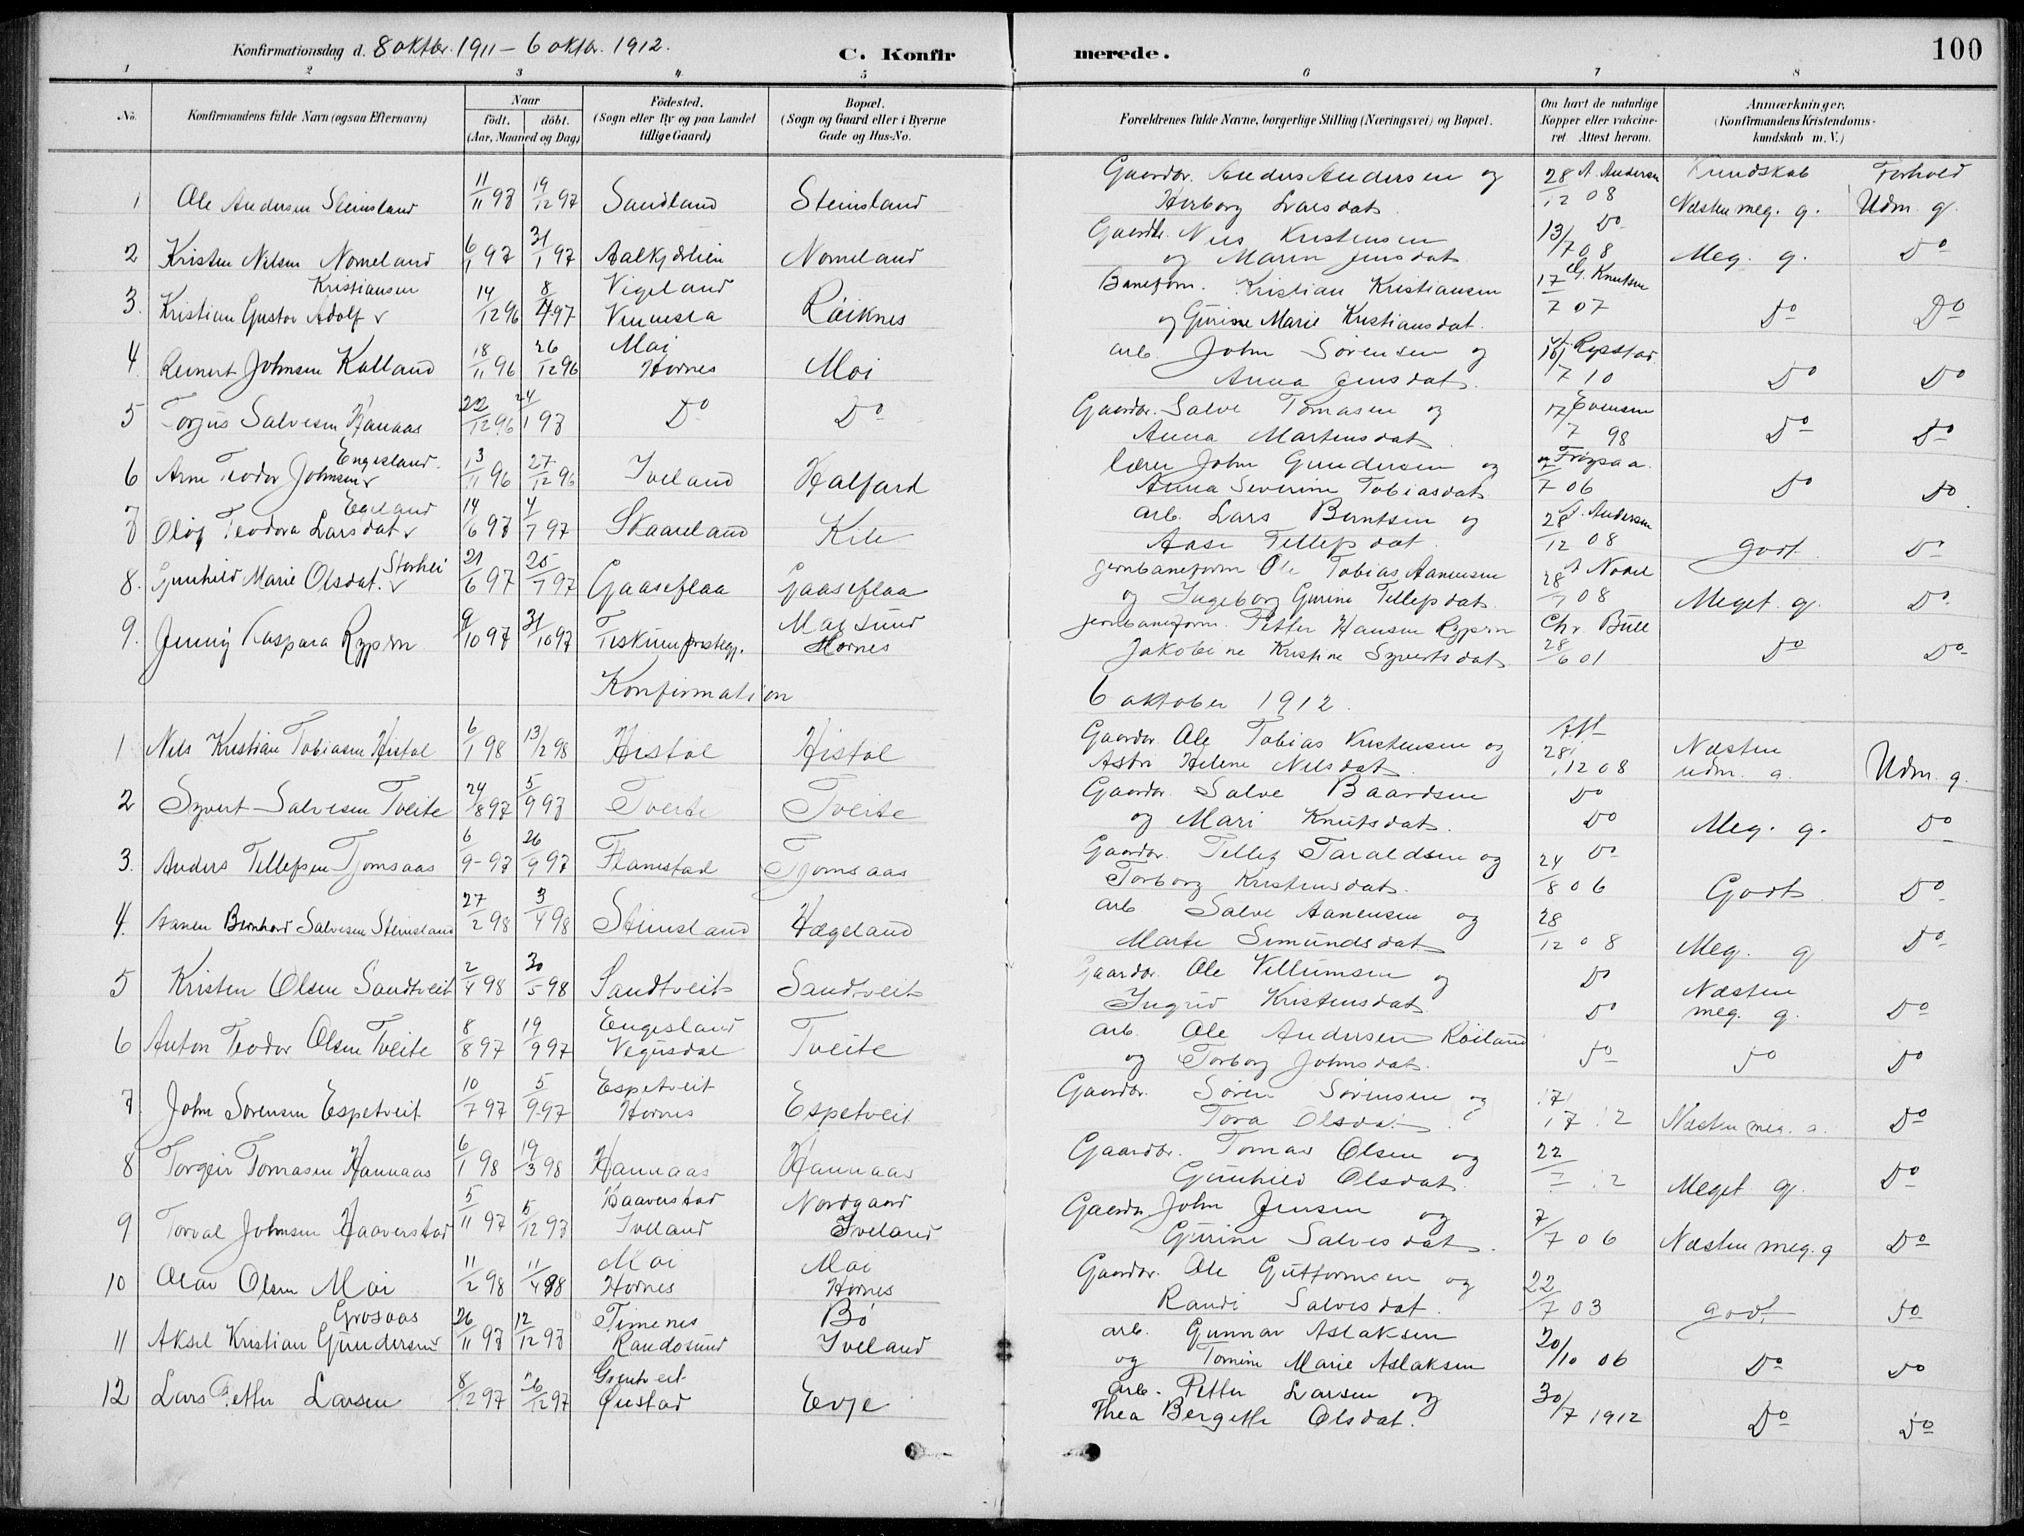 Konfirmationsdag d. 8 oktbr. 1911 – 6 oktbr. 1912.
C. Konfirmerede.
100
1 2 3 4 5 6 7 8
No. Konfirmandens fulde Navn (ogsaa Efternavn) Naar født. døbt. (Aar, Maaned og Dag) Födested. (Sogn eller By og paa Landet tillige Gaard) Bopæl. (Sogn og Gaard eller i Byerne Gade og Hus-No. Forældrenes fulde Navne, borgerlige Stilling (Næringsvei) og Bopæl. Om havt de naturlige Kopper eller vakcineret Attest herom. Anmærkninger. (Konfirmandens Kristendomskundskab m. V.)
Kundskab Forhold
1 Ole Andersen Steinsland 11/11 97 19/12 97 Sandland Steinsland Gaardbr. Anders Andersen og Herborg Larsdat. 28/12 08 A. Andersen Næsten meg. g. Udm. g.
2 Kristen Nilsen Nomeland 6/1 97 31/1 97 Aalkjærlien Nomeland Gaardbr. Nils Kristensen og Maren Jensdat. 13/7 08 Do Meg. g. Do
3. Kristian Gustav Adolf Kristiansen 14/12 96 8/4 97 Vigeland Vennesla Röiknes Baneform. Kristian Kristiansen og Gurine Marie Kristiansdat. 17/7 07 G. Knutsen Do Do
4 Reinert Johnsen Kalland 18/11 96 26/12 96 Moi Hornes Moi arb. John Sörensen og Anna Jensdat. 16/7 10 Rysstad Do Do
5 Torjus Salvesen Hanaas 22/12 96 24/1 97 Do Do Gaardbr. Salve Tomasen og Anna Martensdat. 17/7 98 Evensen Do Do
6 Arne Teodor Johnsen Engesland 13/11 96 27/12 96 Iveland Kalfard lærer John Gundersen og Anna Severine Tobiasdat. 7/7 06 Frøysaa Do Do
7 Olöf Teodora Larsdat. Egeland 14/6 97 4/7 97 Skaareland Kile arb. Lars Berntsen og Aase Tellefsdat. 28/12 08 A. Andersen godt Do
8. Gunhild Marie Olsdat. Storhei 21/6 97 25/7 97 Gaaseflaa Gaaseflaa jernbaneform Ole Tobias Aanensen og Ingeborg Gurine Tellefsdat. 28/7 08 Meget g. Do
9. Jenny Kaspara Rypern 9/10 97 31/10 97 Fiskum prstegj. Moisund Hornes jernbaneform. Petter Hansen Rypern Jakobine Kristine Syvertsdat. Chr. Bull 28/6 01 Do Do
Konfirmation 6 oktober 1912.
1 Nils Kristian Tobiasen Histöl 6/1 98 13/2 98 Histöl Histöl Gaardbr. Ole Tobias Kristensen og Astri Helene Nilsdat. 28/12 08 Næsten udm. g. Udm. g.
2 Syvert Salvesen Tveite 24/8 97 5/9 97 Tveite Tveite Gaardbr. Salve Baardsen og Mari Knutsdat. Do Do Meg. g. Do
3. Anders Tellefsen Tjomsaas 6/9 97 26/9 97 Flamstad Tjomsaas Gaardbr. Tellef Taraldsen og Torborg Kristensdat. 24/8 06 Do Godt Do
4. Aanen Bernhard Salvesen Steinsland 27/2 98 3/4 98 Steinsland Hægeland arb Salve Aanensen og Marte Simundsdat. 28/12 08 Meg. g Do
5 Kristen Olsen Sandtveit 2/4 98 30/5 98 Sandtveit Sandtveit Gaardbr. Ole Villumsen og Ingrid Kristensdat. Do Do Næsten meg. g. Do
6 Anton Teodor Olsen Tveite 8/8 97 19/9 97 Engesland Vegusdal Tveite arb. Ole Andersen Röiland og Torborg Johnsdat. Do Do Do
7 John Sörensen Espetveit 10/7 97 5/9 97 Espetveit Hornes Espetveit Gaardbr. Sören Sörensen og Tora Olsdat. 17/7 12 Næsten meg. g. Do
8 Torgeir Tomasen Hannaas 6/1 98 19/3 98 Hannaas Hannaas Gaardbr. Tomas Olsen og Gunhild Olsdat. 22/7 12 Meget g. Do
9 Torval Johnsen Haaverstad 5/11 97 5/12 97 Haaverstad Iveland Nordgaard Iveland Gaardbr John Jensen og Gurine Salvesdat. 7/7 06 Næsten meg. g Do
10 Olav Olsen Moi 11/2 98 11/4 98 Moi Hornes Moi Hornes Gaardbr. Ole Guttormsen og Randi Salvesdat. 22/7 03 godt Do
11 Aksel Kristian Gundersen Grosaas 26/11 97 12/12 97 Timenes Randösund Bö Iveland arb. Gunnar Aslaksen og Tomine Marie Aslaksen 20/10 06 Do Do
12 Lars Petter Larsen 8/12 97 26/12 97 Öiestad Evje arb. Petter Larsen og Thea Bergette Olsdat. 30/7 1912 Do Do